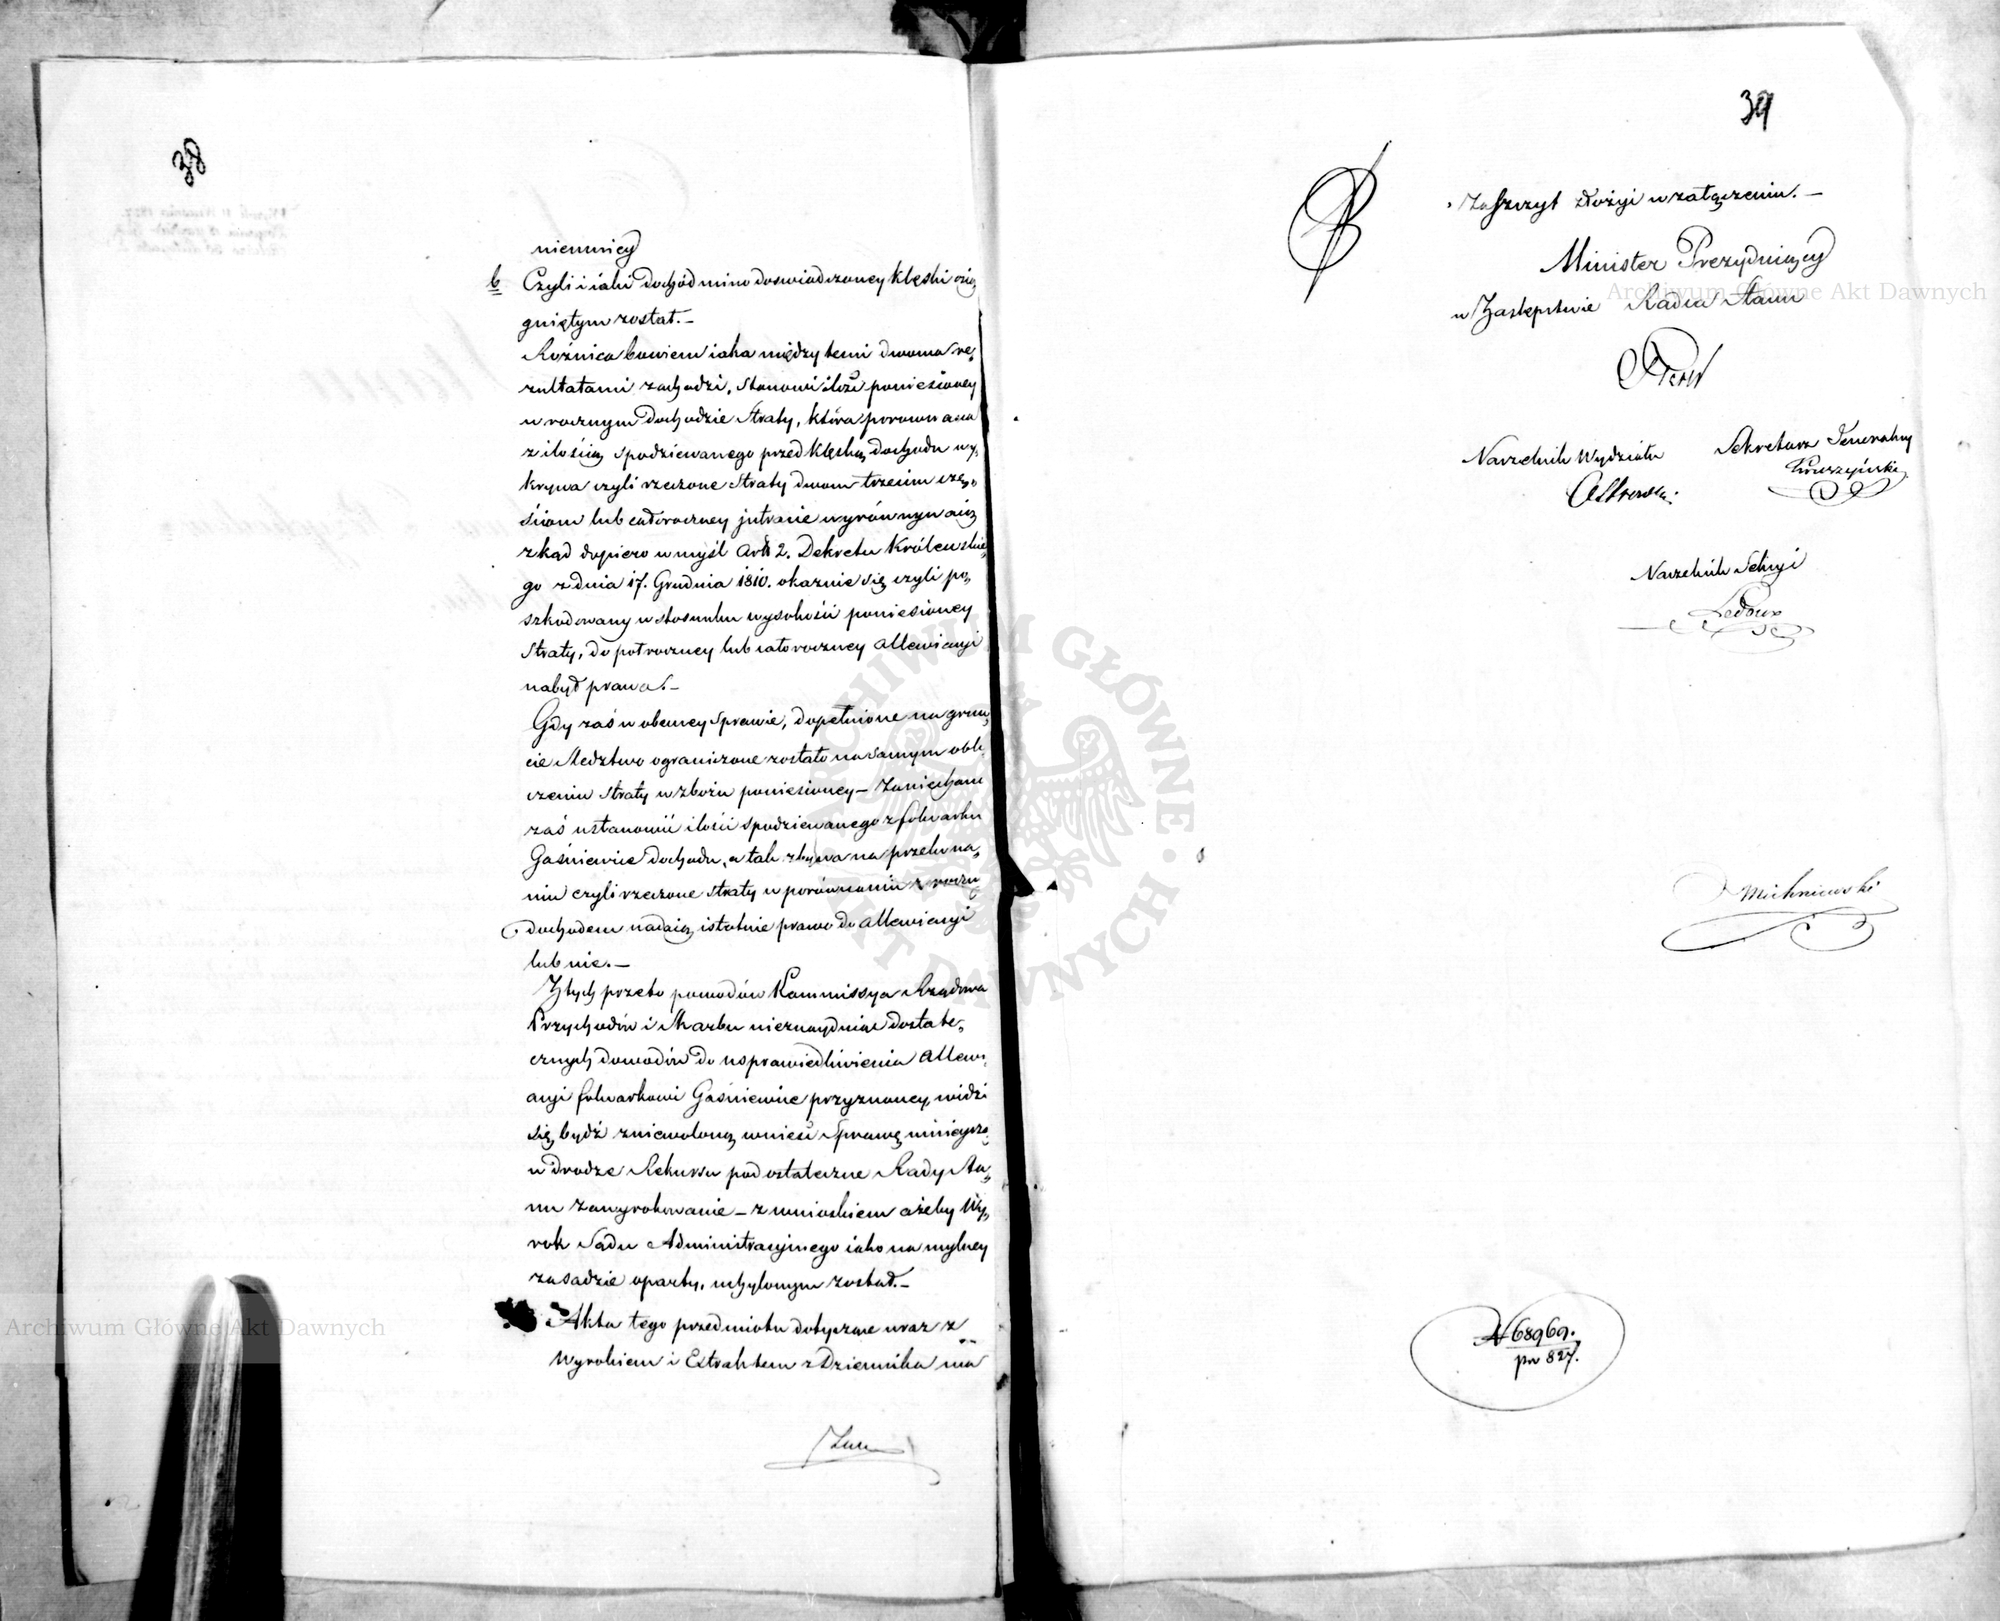 38
niemniey
b Czyli i iaki dochód mimo doswiadczoney klęski osią
gniętym został.–
Roźnica bowiem iaka między temi dwoma re„
zultatami zachodzi, stanowi ilość poniesioney
w rocznym dochodzie straty, która porownana
z ilością spodziewanego przed klęską dochodu wy„
krywa czyli rzeczone straty dwom trzecim czę„
ściom lub całoroczney intracie wyrównywaią
zkąd dopiero w myśl Art 2. Dekretu Królewskie„
go z dnia 17. Grudnia 1810. okazuie się czyli po„
szkodowany w stosunku wysokości poniesioney
straty, do połroczney lub całoroczney allewiacyi
nabył prawa.–
Gdy zaś w obecney sprawie, dopełnione na grun„
cie śledztwo ograniczone zostało na samym obli„
czeniu straty w zbożu poniesioney – zaniechano
zaś ustanowić ilości spodziewanego z folwarku
Gaśniewice dochodu, a tak zbywa na przekona„
niu czyli rzeczone straty w porównaniu z roczny
dochodem nadaią istotnie prawo do allewiacyi
lub nie.–
Z tych przeto powodów Kommissya Rządowa
Przychodów i Skarbu nieznayduiąc dostate„
cznych dowodów do usprawiedliwienia allewi„
acyi folwarkowi Gaśniewice przyznaney, widzi
się bydź zniewoloną wnieść sprawę ninieyszą
w drodze Rekursu pod ostateczne Rady Sta„
nu zawyrokowanie – z wnioskiem ażeby Wy„
rok Sądu Administracyjnego iako na mylney
zasadzie oparty, uchylonym został.–
Akta tego przedmiotu dotyczące wraz z
Wyrokiem i Extraktem z Dziennika ma
39
Zaszczyt złożyć w załączeniu.–
Minister Prezyduiący
w Zastępstwie Radca Stanu
Naczelnik Wydziału
Sekretarz Jeneralny
Kruszyński
Naczelnik Sekcyi
Ledoux
Michniewski
N 68969.
pr 827.
Archiwum Główne Akt Dawnych
Archiwum Główne Akt Dawnych
ARCHIWUM GŁÓWNE AKT DAWNYCH